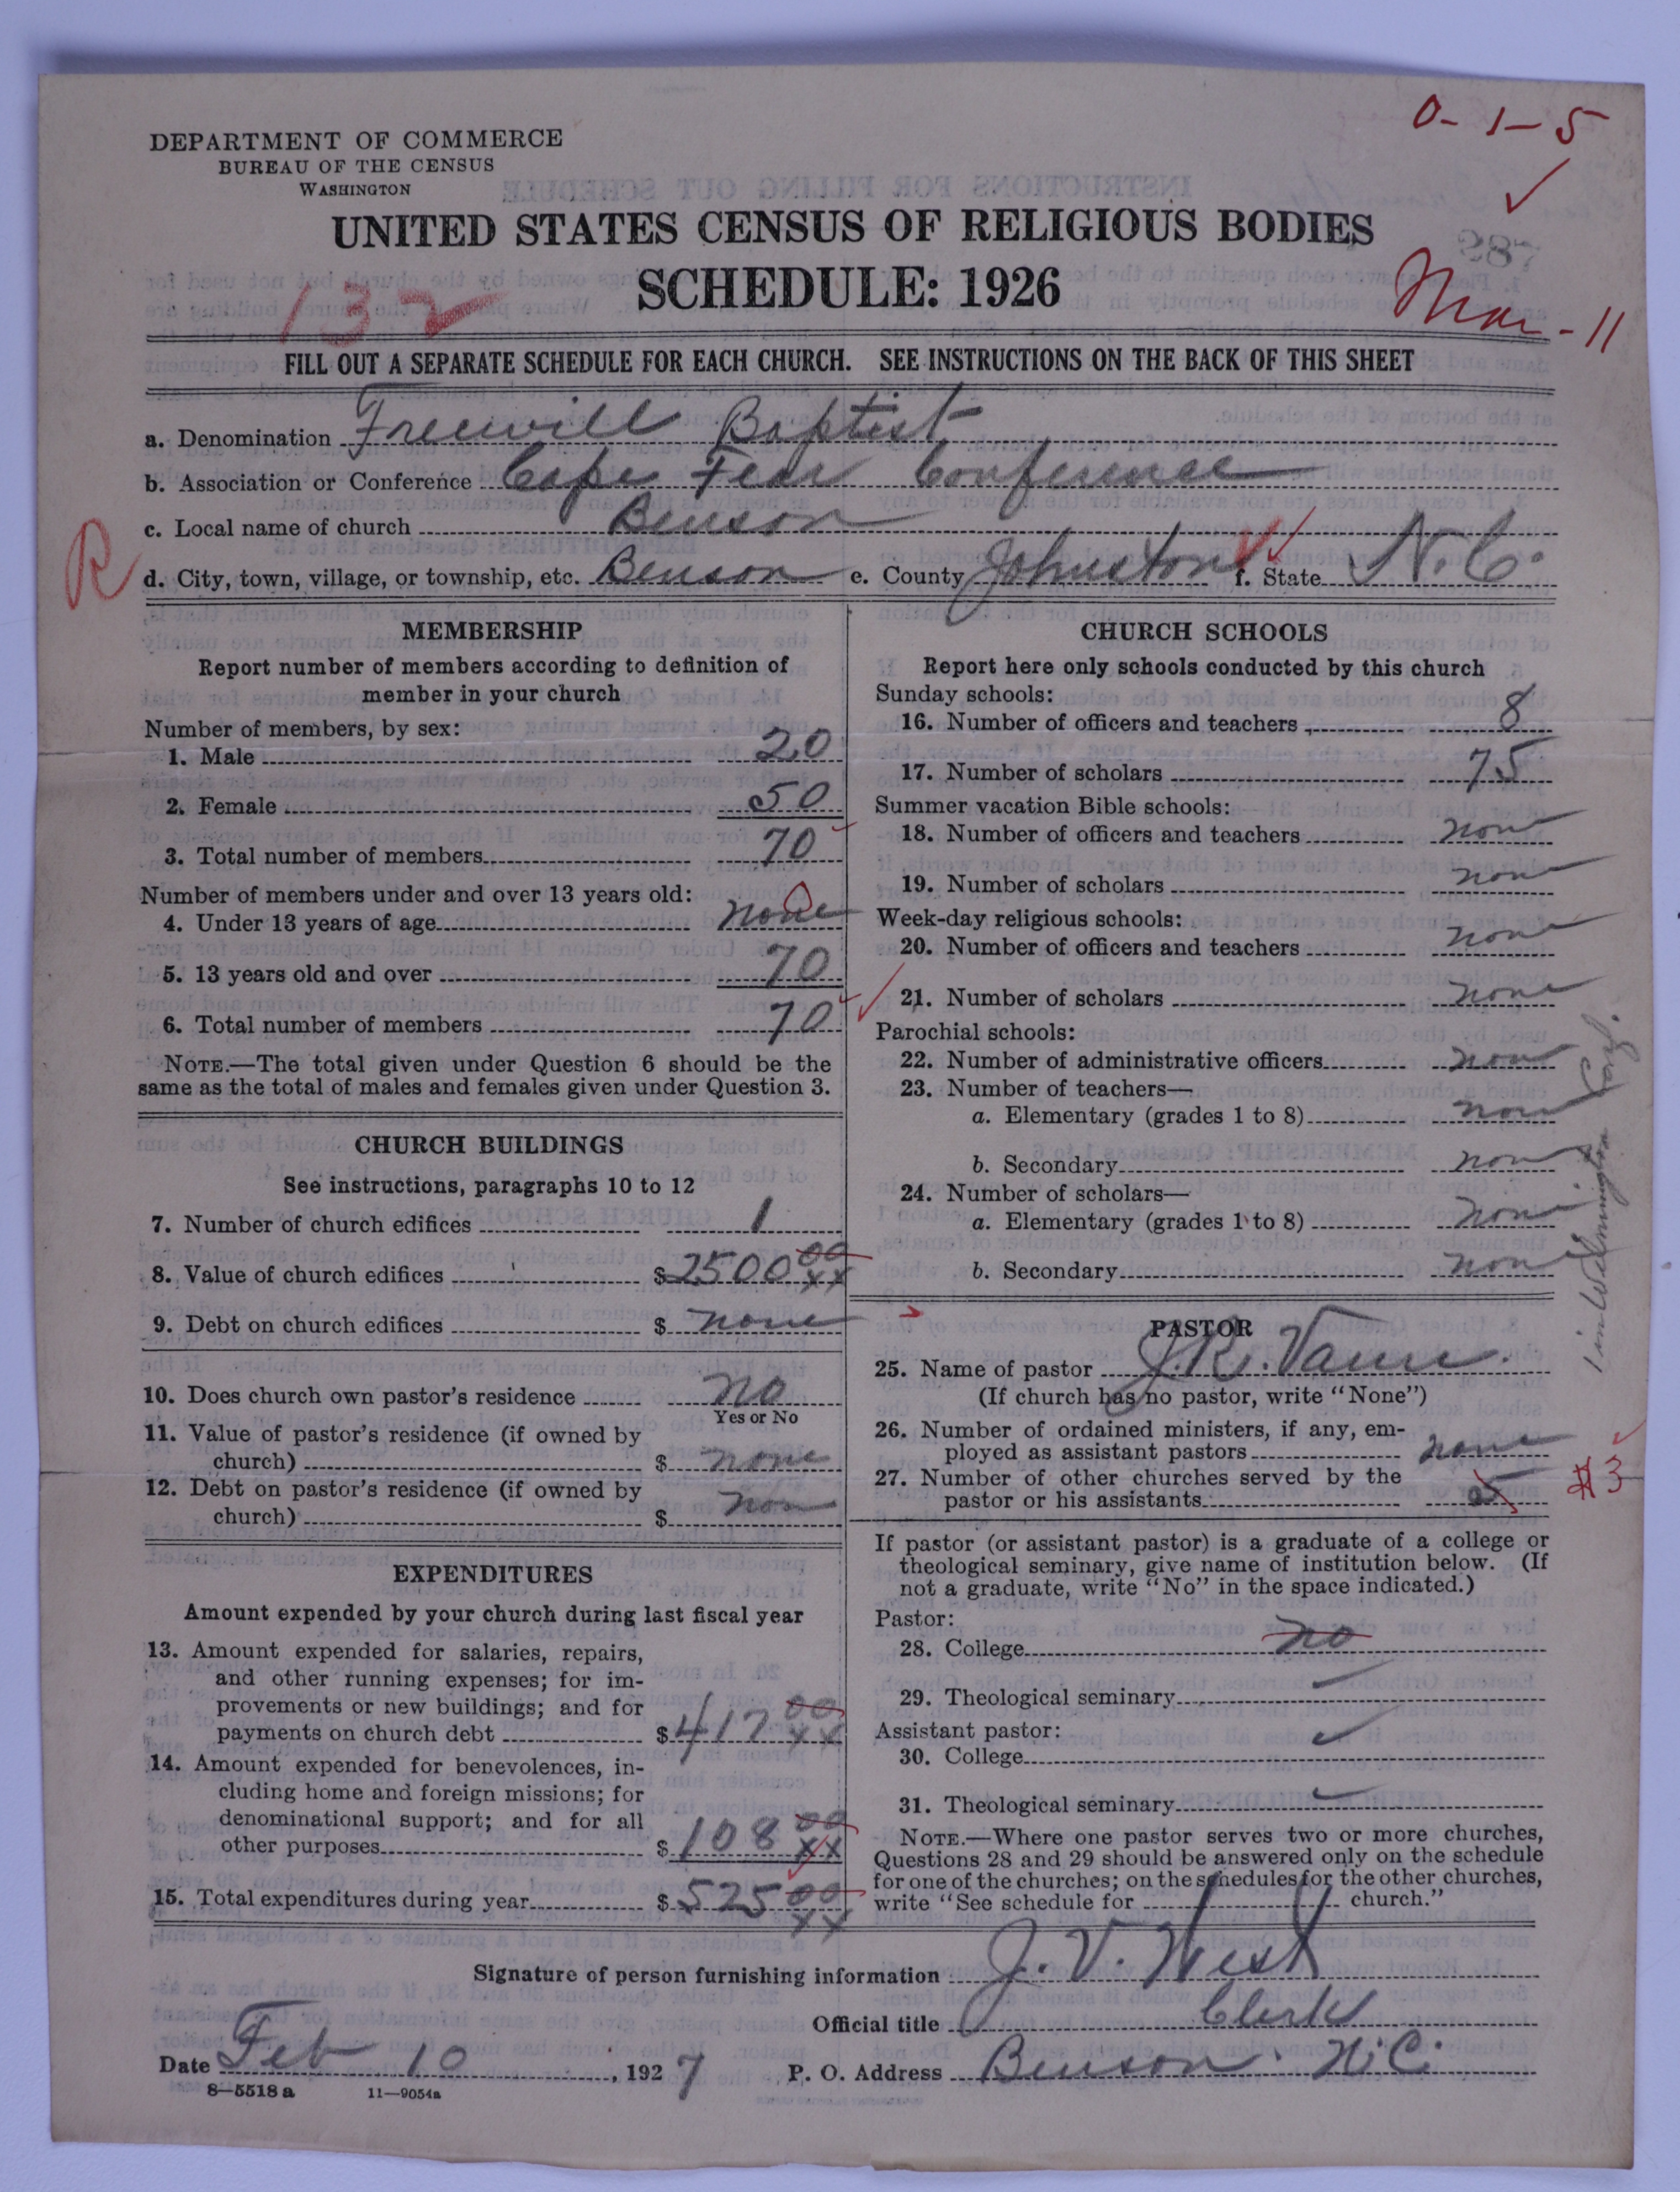 0-1-5
DEPARTMENT OF COMMERCE
BUREAU OF THE CENSUS
WASHINGTON
UNITED STATES CENSUS OF RELIGIOUS BODIES
SCHEDULE: 1926
132
Mar-11
FILL OUT A SEPARATE SCHEDULE FOR EACH CHURCH. SEE INSTRUCTIONS ON THE BACK OF THIS SHEET
a. Denomination Freewill Baptist
b. Association or Conference Cape Fear Conference
c. Local name of church Benson
R
d. City, town, village, or township, etc. Benson e. County Johnston f. State N.C.
MEMBERSHIP
Report number of members according to definition of
member in your church
Number of members, by sex:
1. Male 20
2. Female 50
3. Total number of members 70
Number of members under and over 13 years old:
4. Under 13 years of age none
5. 13 years old and over 70
6. Total number of members 70
NOTE.—The total given under Question 6 should be the
same as the total of males and females given under Question 3.
CHURCH BUILDINGS
See instructions, paragraphs 10 to 12
7. Number of church edifices 1
8. Value of church edifices $2500 00 xx
9. Debt on church edifices $ none
10. Does church own pastor's residence no
Yes or No
11. Value of pastor's residence (if owned by
church) $ none
12. Debt on pastor's residence (if owned by
church) $ non
EXPENDITURES
Amount expended by your church during last fiscal year
13. Amount expended for salaries, repairs,
and other running expenses; for im-
provements or new buildings; and for
payments on church debt $417 00 xx
14. Amount expended for benevolences, in-
cluding home and foreign missions; for
denominational support; and for all
other purposes $108 00 xx
15. Total expenditures during year $525 00 xx
CHURCH SCHOOLS
Report here only schools conducted by this church
Sunday schools:
16. Number of officers and teachers 8
17. Number of scholars 75
Summer vacation Bible schools:
18. Number of officers and teachers none
19. Number of scholars none
Week-day religious schools:
20. Number of officers and teachers none
21. Number of scholars none
Parochial schools:
22. Number of administrative officers none
23. Number of teachers—
a. Elementary (grades 1 to 8) none
b. Secondary none
24. Number of scholars—
a. Elementary (grades 1 to 8) none
b. Secondary none
1 in Wilmington
PASTOR
25. Name of pastor J.R. Vann.
(If church has no pastor, write "None")
26. Number of ordained ministers, if any, em-
ployed as assistant pastors none
27. Number of other churches served by the
pastor or his assistants 3
If pastor (or assistant pastor) is a graduate of a college or
theological seminary, give name of institution below. (If
not a graduate, write "No" in the space indicated.)
Pastor:
28. College no
29. Theological seminary
Assistant pastor:
30. College
31. Theological seminary
NOTE.—Where one pastor serves two or more churches,
Questions 28 and 29 should be answered only on the schedule
for one of the churches; on the schedules for the other churches,
write "See schedule for church."
Signature of person furnishing information J. V. West
Official title Clerk
Date Feb 10, 1927 P. O. Address Benson. N.C.
8—5518 a 11—9054a